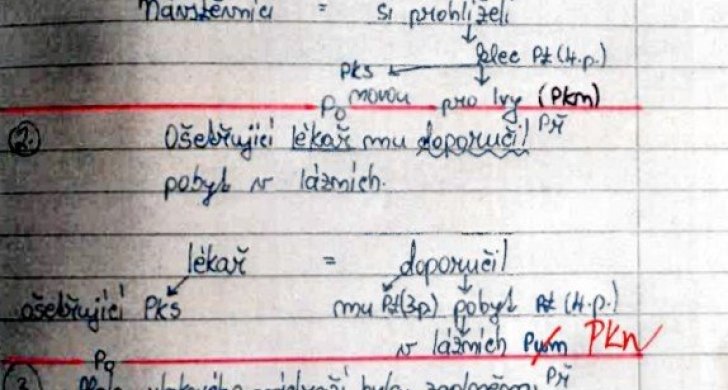 Návštěvníci = si prohlíželi
klec Pt (4.p.)
PKS
novou pro lvy (PKn)
Po Př
2. Ošetřující lékař mu doporučil
pobyt v lázních.
lékař = doporučil
ošetřující PKS mu Pt(3p) pobyt Pt (4.p.)
v lázních PKN
Po Př
3.